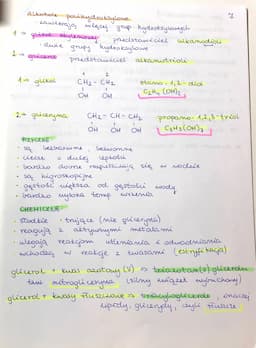 Alkohole polihydroksylowe 1
zawierają więcej grup hydroksylowych
1 → glikol etylenowy przedstawiciel alkanodioli
- dwie grupy hydroksylowe
2 → gliceryna przedstawiciel alkanotrioli
1 → glikol CH₂ - CH₂ etano-1,2-diol
OH OH C₂H₄(OH)₂
2 → gliceryna CH₂ - CH - CH₂ propano-1,2,3-triol
OH OH OH C₃H₅(OH)₃
FIZYCZNE
• są bezbarwne, bezwonne
• ciecze o dużej lepkości
• bardzo dobrze rozpuszczają się w wodzie
• są higroskopijne
• gęstość większa od gęstości wody
• bardzo wysoka temp wrzenia
CHEMICZNE
• słodkie - trujące (nie gliceryna)
• reagują z aktywnymi metalami
• ulegają reakcjom utleniania i odwodniania
wchodzą w reakcje z kwasami (estryfikacja)
glicerol + kwas azotowy (V) ⇒ triazotan(V) glicerolu
tzw nitrogliceryna (silny związek wybuchowy)
glicerol + kwasy tłuszczowe ⇒ triacyloglicerole, inaczej
lipidy, glicerydy, czyli tłuszcze